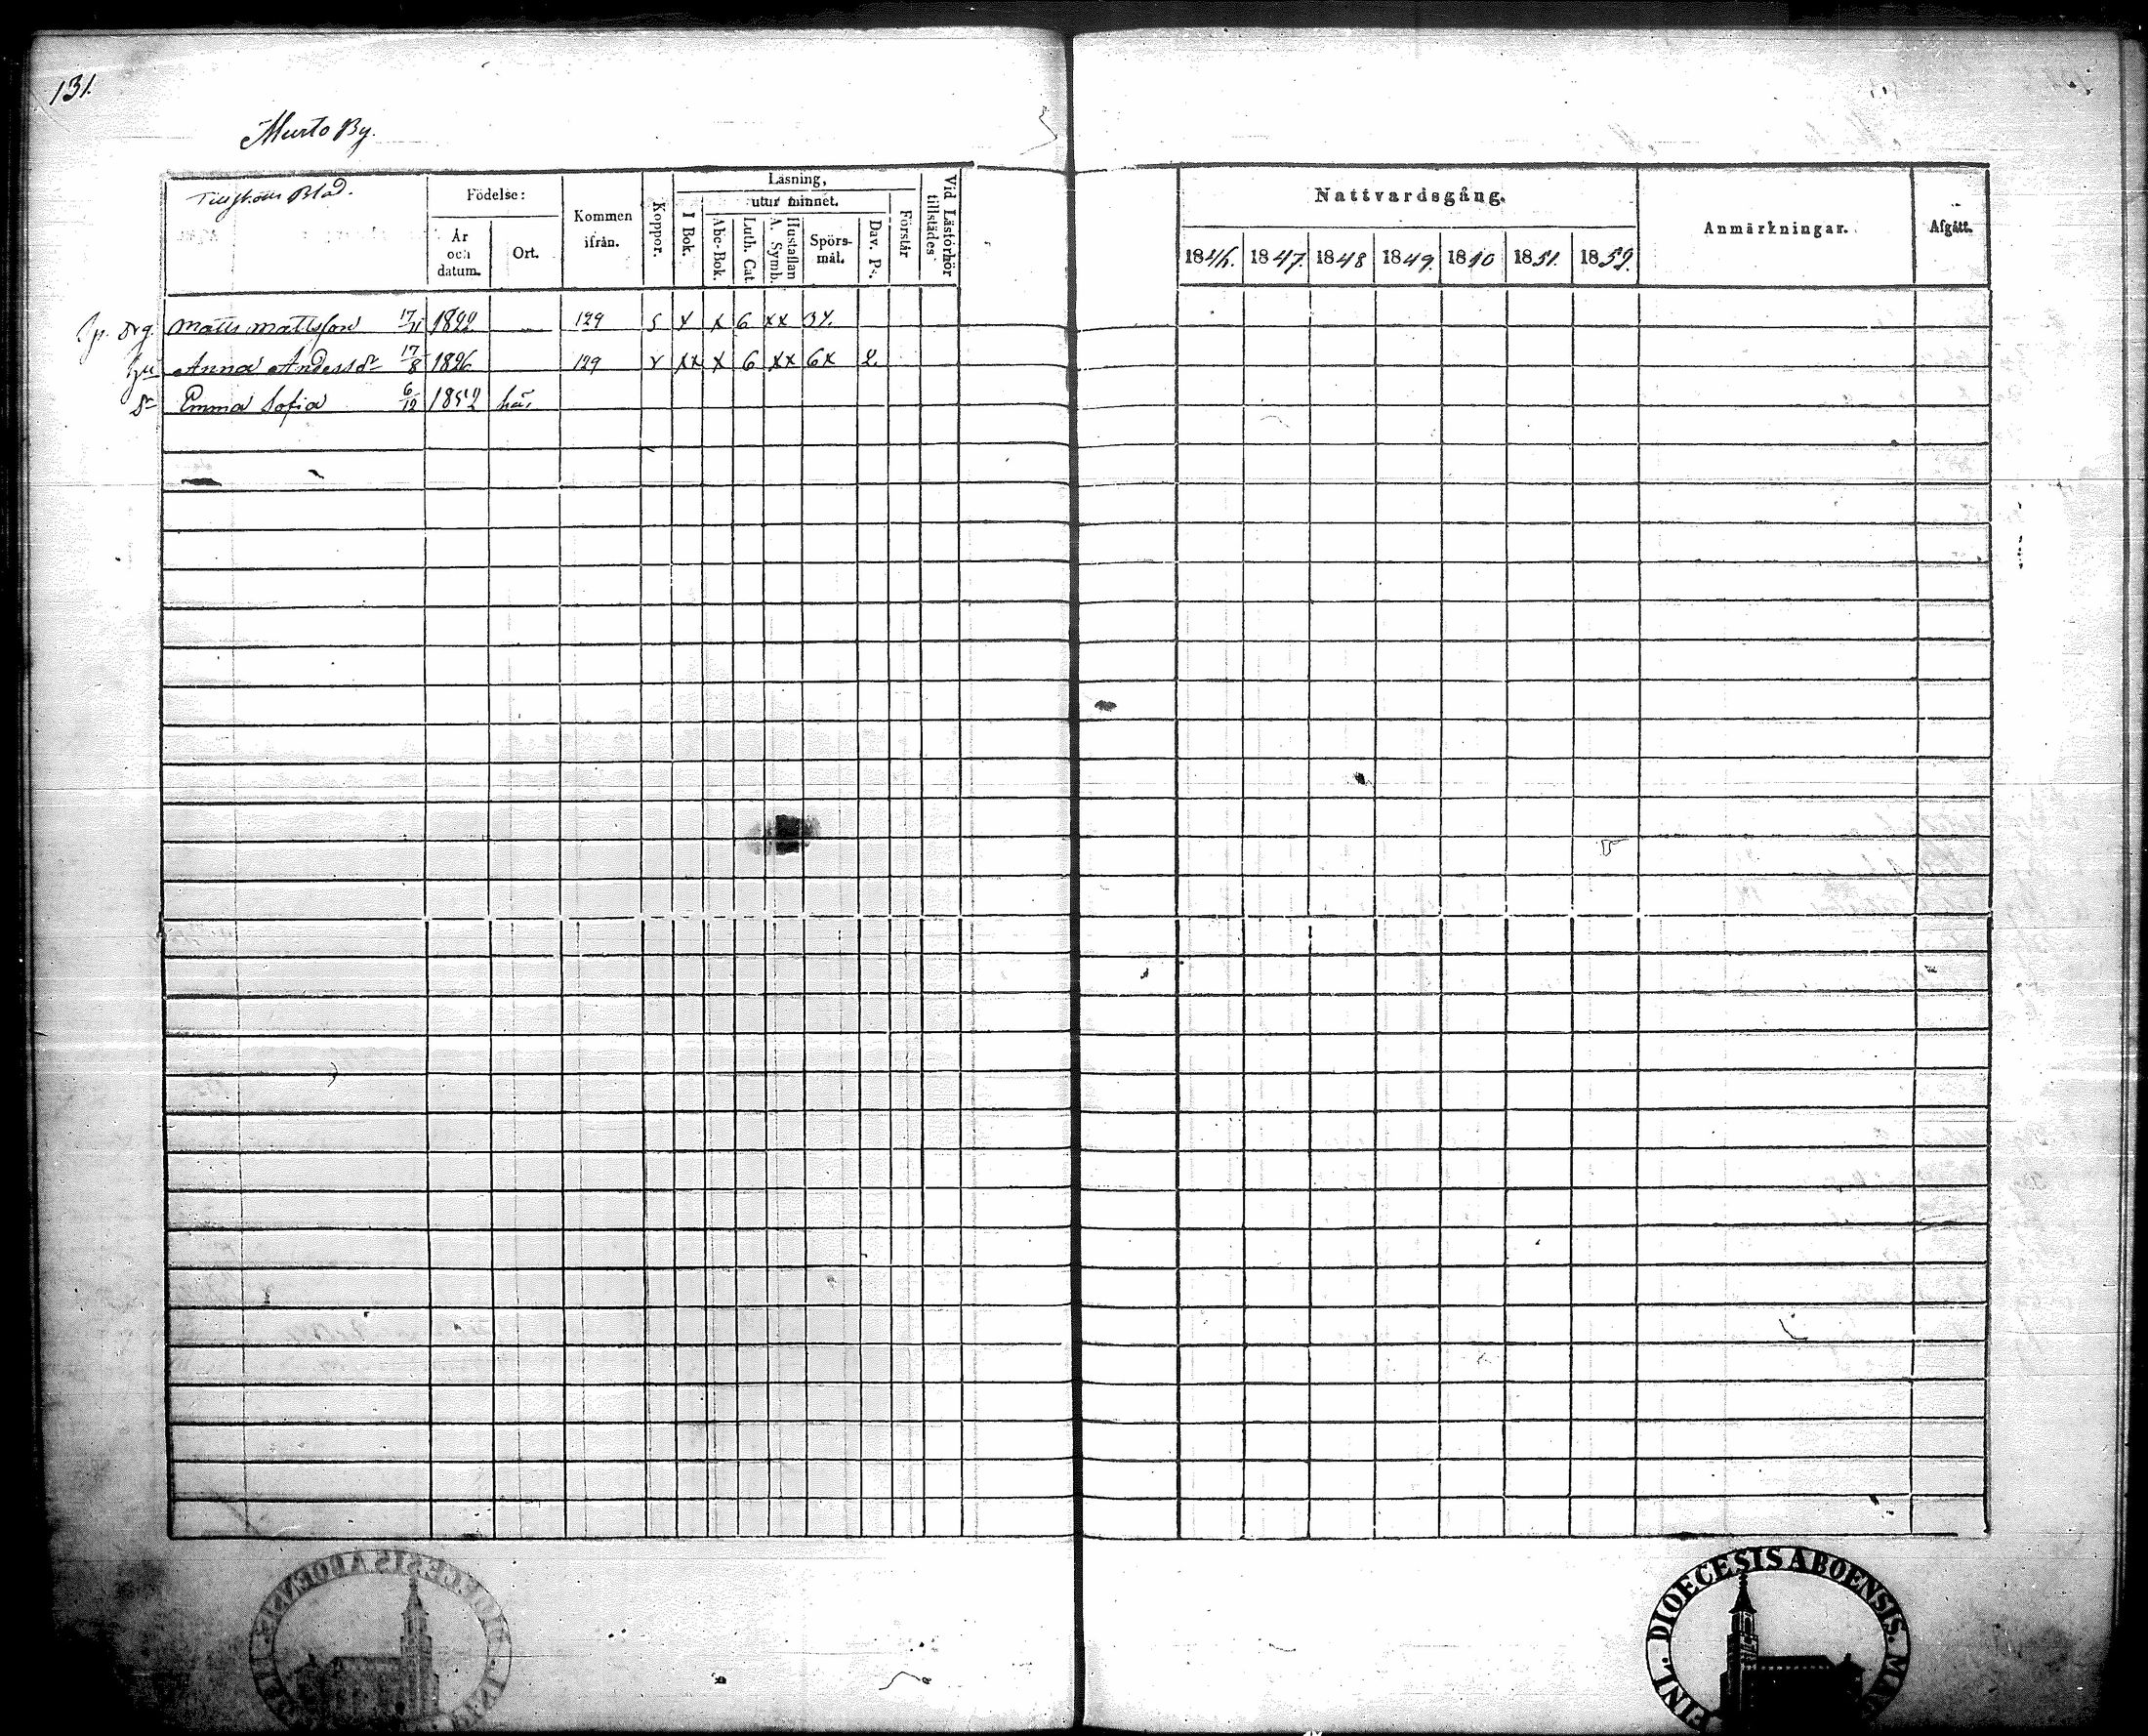 131.
Murto By.
Blad.
Födelse:
År och datum.
Ort.
Kommen ifrån.
Koppor.
Läsning,
I Bok.
utur minnet.
Abc-Bok.
Luth. Cat.
Hustaflan A. Symb.
Spörs-mål.
Dav. Ps.
Förstår
Vid Läsförhör tillstädes
Nattvardsgång.
1846. 1847. 1848 1849. 1850 1851. 1852.
Anmärkningar.
Afgått.
Matts Mattsson 17/11 1822 129 s x x 6 xx 3x.
hu Anna Andersdr 17/8 1826 129 v xx x 6 xx 6x 2.
dr Emma Sofia 6/12 1852 här
FINL. DIOECESIS ABOENSIS.